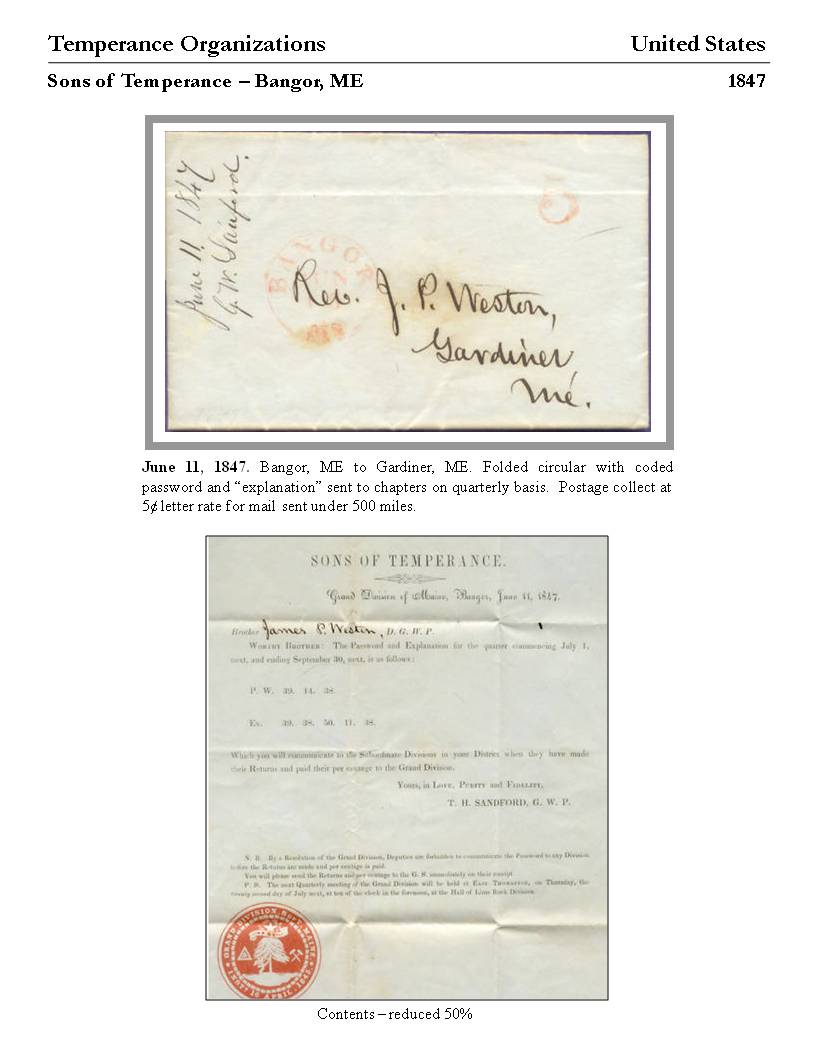 Temperance Organizations United States
Sons of Temperance – Bangor, ME 1847
June 11, 1847
G. W. Sanford.
5
BANGOR
Me.
Rev. J. P. Weston,
Gardiner,
Me.
June 11, 1847. Bangor, ME to Gardiner, ME. Folded circular with coded
password and “explanation” sent to chapters on quarterly basis. Postage collect at
5¢ letter rate for mail sent under 500 miles.
SONS OF TEMPERANCE.
Grand Division of Maine, Bangor, June 11, 1847.
Brother James P. Weston, D. G. W. P.
WORTHY BROTHER: The Password and Explanation for the quarter commencing July 1,
next, and ending September 30, next, is as follows:
P. W. 39. 14. 38.
Ex. 39. 38. 50. 11. 38.
Which you will communicate to the Subordinate Divisions in your District when they have made
their Returns and paid their per centage to the Grand Division.
Yours, in LOVE, PURITY and FIDELITY,
T. H. SANDFORD, G. W. P.
N. B. By a Resolution of the Grand Division, Deputies are forbidden to communicate the Password to any Division
before the Returns are made and per centage is paid.
You will please send the Returns and per centage to the G. S. immediately on their receipt
P. S. The next Quarterly meeting of the Grand Division will be held at EAST THOMASTON, on Thursday, the
twenty second day of July next, at ten of the clock in the forenoon, at the Hall of Lime Rock Division.
GRAND DIVISION MAINE
APRIL
Contents – reduced 50%